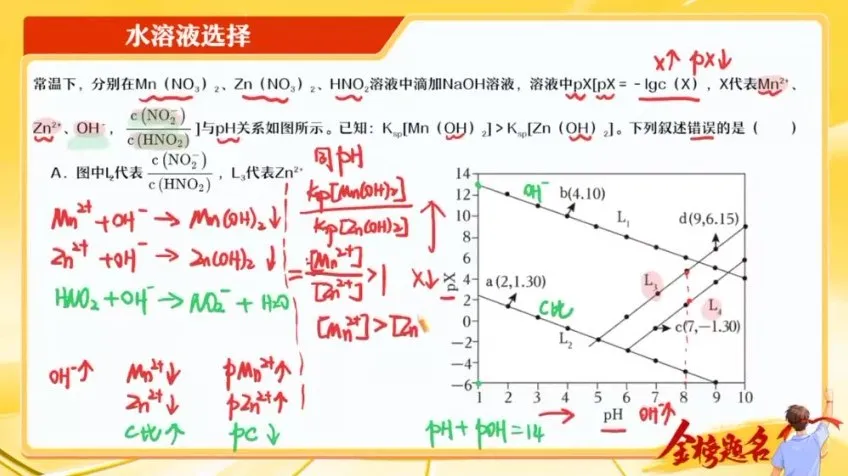 水溶液选择
X↑ pX↓
常温下，分别在Mn（NO₃）₂、Zn（NO₃）₂、HNO₂溶液中滴加NaOH溶液，溶液中pX[pX = －lgc（X），X代表Mn²⁺、
Zn²⁺、OH⁻，c(NO₂⁻)/c(HNO₂)]与pH关系如图所示。已知：Kₛₚ[Mn（OH）₂]＞Kₛₚ[Zn（OH）₂]。下列叙述错误的是（　　）
A．图中L₂代表 c(NO₂⁻)/c(HNO₂)，L₃代表Zn²⁺
同pH
Mn²⁺ + OH⁻ → Mn(OH)₂↓
Zn²⁺ + OH⁻ → Zn(OH)₂↓
HNO₂ + OH⁻ → NO₂⁻ + H₂O
Ksp[Mn(OH)₂]
Ksp[Zn(OH)₂]
= [Mn²⁺]/[Zn²⁺] > 1
[Mn²⁺] > [Zn
OH⁻↑ Mn²⁺↓ pMn²⁺↑
Zn²⁺↓ pZn²⁺↑
C比↑ pC↓
X↓
pX
14
12
10
8
6
4
2
0
−2
−4
−6
OH⁻
b(4.10)
L₁
d(9,6.15)
a(2,1.30)
C比
L₃
L₄
L₂
c(7,−1.30)
1 2 3 4 5 6 7 8 9 10
pH OH⁻↑
pH + pOH = 14
金榜题名